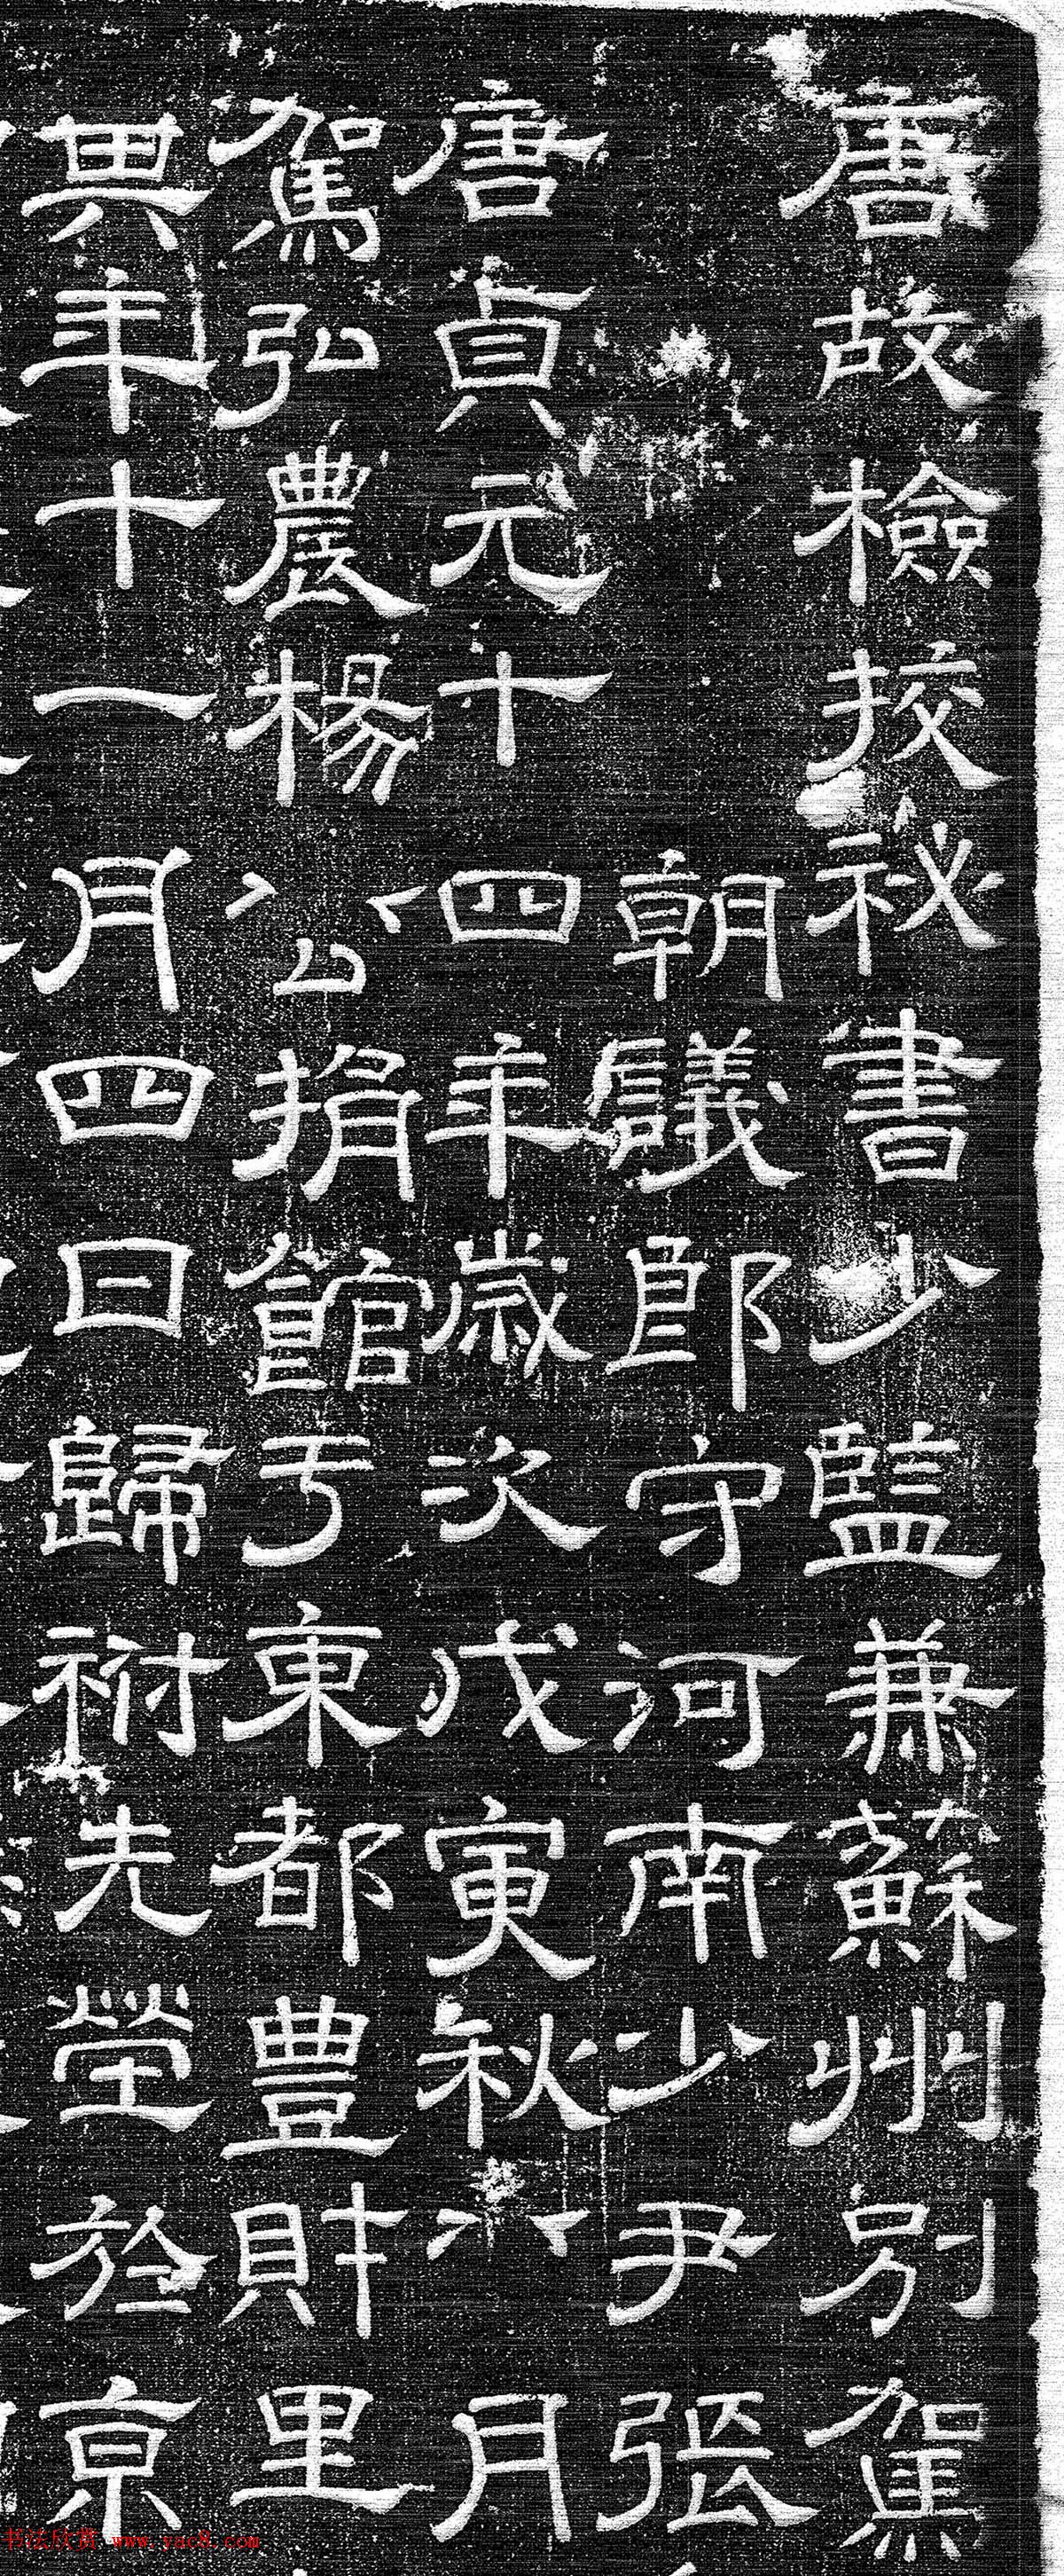 唐故檢挍祕書少監兼蘇州别駕
朝議郎守河南少尹張
唐貞元十四年歲次戊寅秋八月
駕弘農楊公捐館于東都豊財里
其年十一月四日歸祔先塋於京
书法欣赏 www.yac8.com